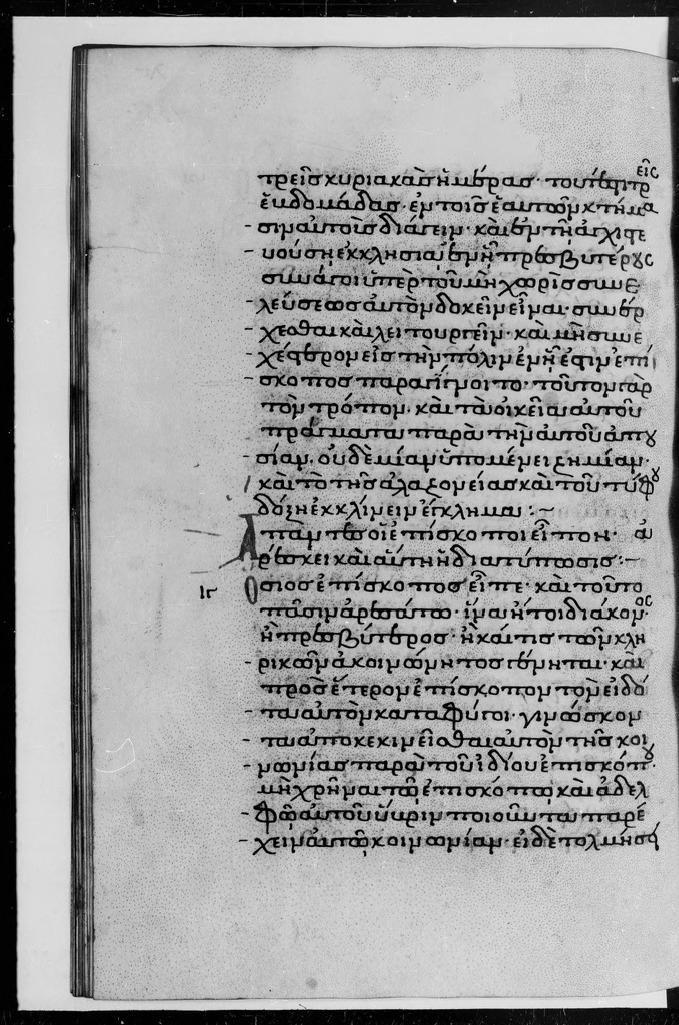 τρεῖς κυριακὰς ἡμέρας· τουτέστιν εἰς τρ
ἑβδομάδας· ἐν τοῖς ἑαυτῶν κτήμα
σιν αὐτοὺς διάγειν· καὶ ἐν τῇ ἀγχιγε
νούσῃ ἐκκλησία, ἐν ᾗ πρεσβυτέρους
συνάγοι ὑπὲρ τοῦ μὴ χωρὶς συνε
λεύσεως αὐτὸν δοκεῖν εἶναι· συνέρ
χεσθαι καὶ λειτουργεῖν· καὶ μὴ συνε
χέστερον εἰς τὴν πόλιν ἐν ᾗ ἐστιν ἐπί
σκοπος παραγίγνοιτο· τοῦτον γὰρ
τὸν τρόπον· καὶ τὰ οἰκεῖα αὐτοῦ
πράγματα παρὰ τὴν αὐτοῦ ἀπου
σίαν, οὐδεμίαν ὑπομένει ζημίαν·
καὶ τὸ τῆς ἀλαζονείας καὶ τοῦ τύφου
δόξῃ ἐκκλίνειν ἔγκλημα :~
Ἅπαντες οἱ ἐπίσκοποι εἶπον· ἀ
ρέσκει καὶ αὕτη ἡ διατύπωσις :~
ιγ Ὅσιος ἐπίσκοπος εἶπε· καὶ τοῦτο
πᾶσιν ἀρεσάτω· ἵνα ἤτοι διάκονος
ἢ πρεσβύτερος· ἢ καί τις τῶν κλη
ρικῶν ἀκοινώνητος γένηται· καὶ
πρὸς ἕτερον ἐπίσκοπον τὸν εἰδό
τα αὐτὸν καταφύγοι· γινώσκον
τα ἀποκεκινεῖσθαι αὐτὸν τῆς κοι
νωνίας παρὰ τοῦ ἰδίου ἐπισκόπου·
μὴ χρῆναι τῷ ἐπισκόπω καὶ ἀδελ
φῷ αὐτοῦ ὕβριν ποιοῦντα παρέ
χειν αὐτῷ κοινωνίαν· εἰ δὲ τολμήσοι